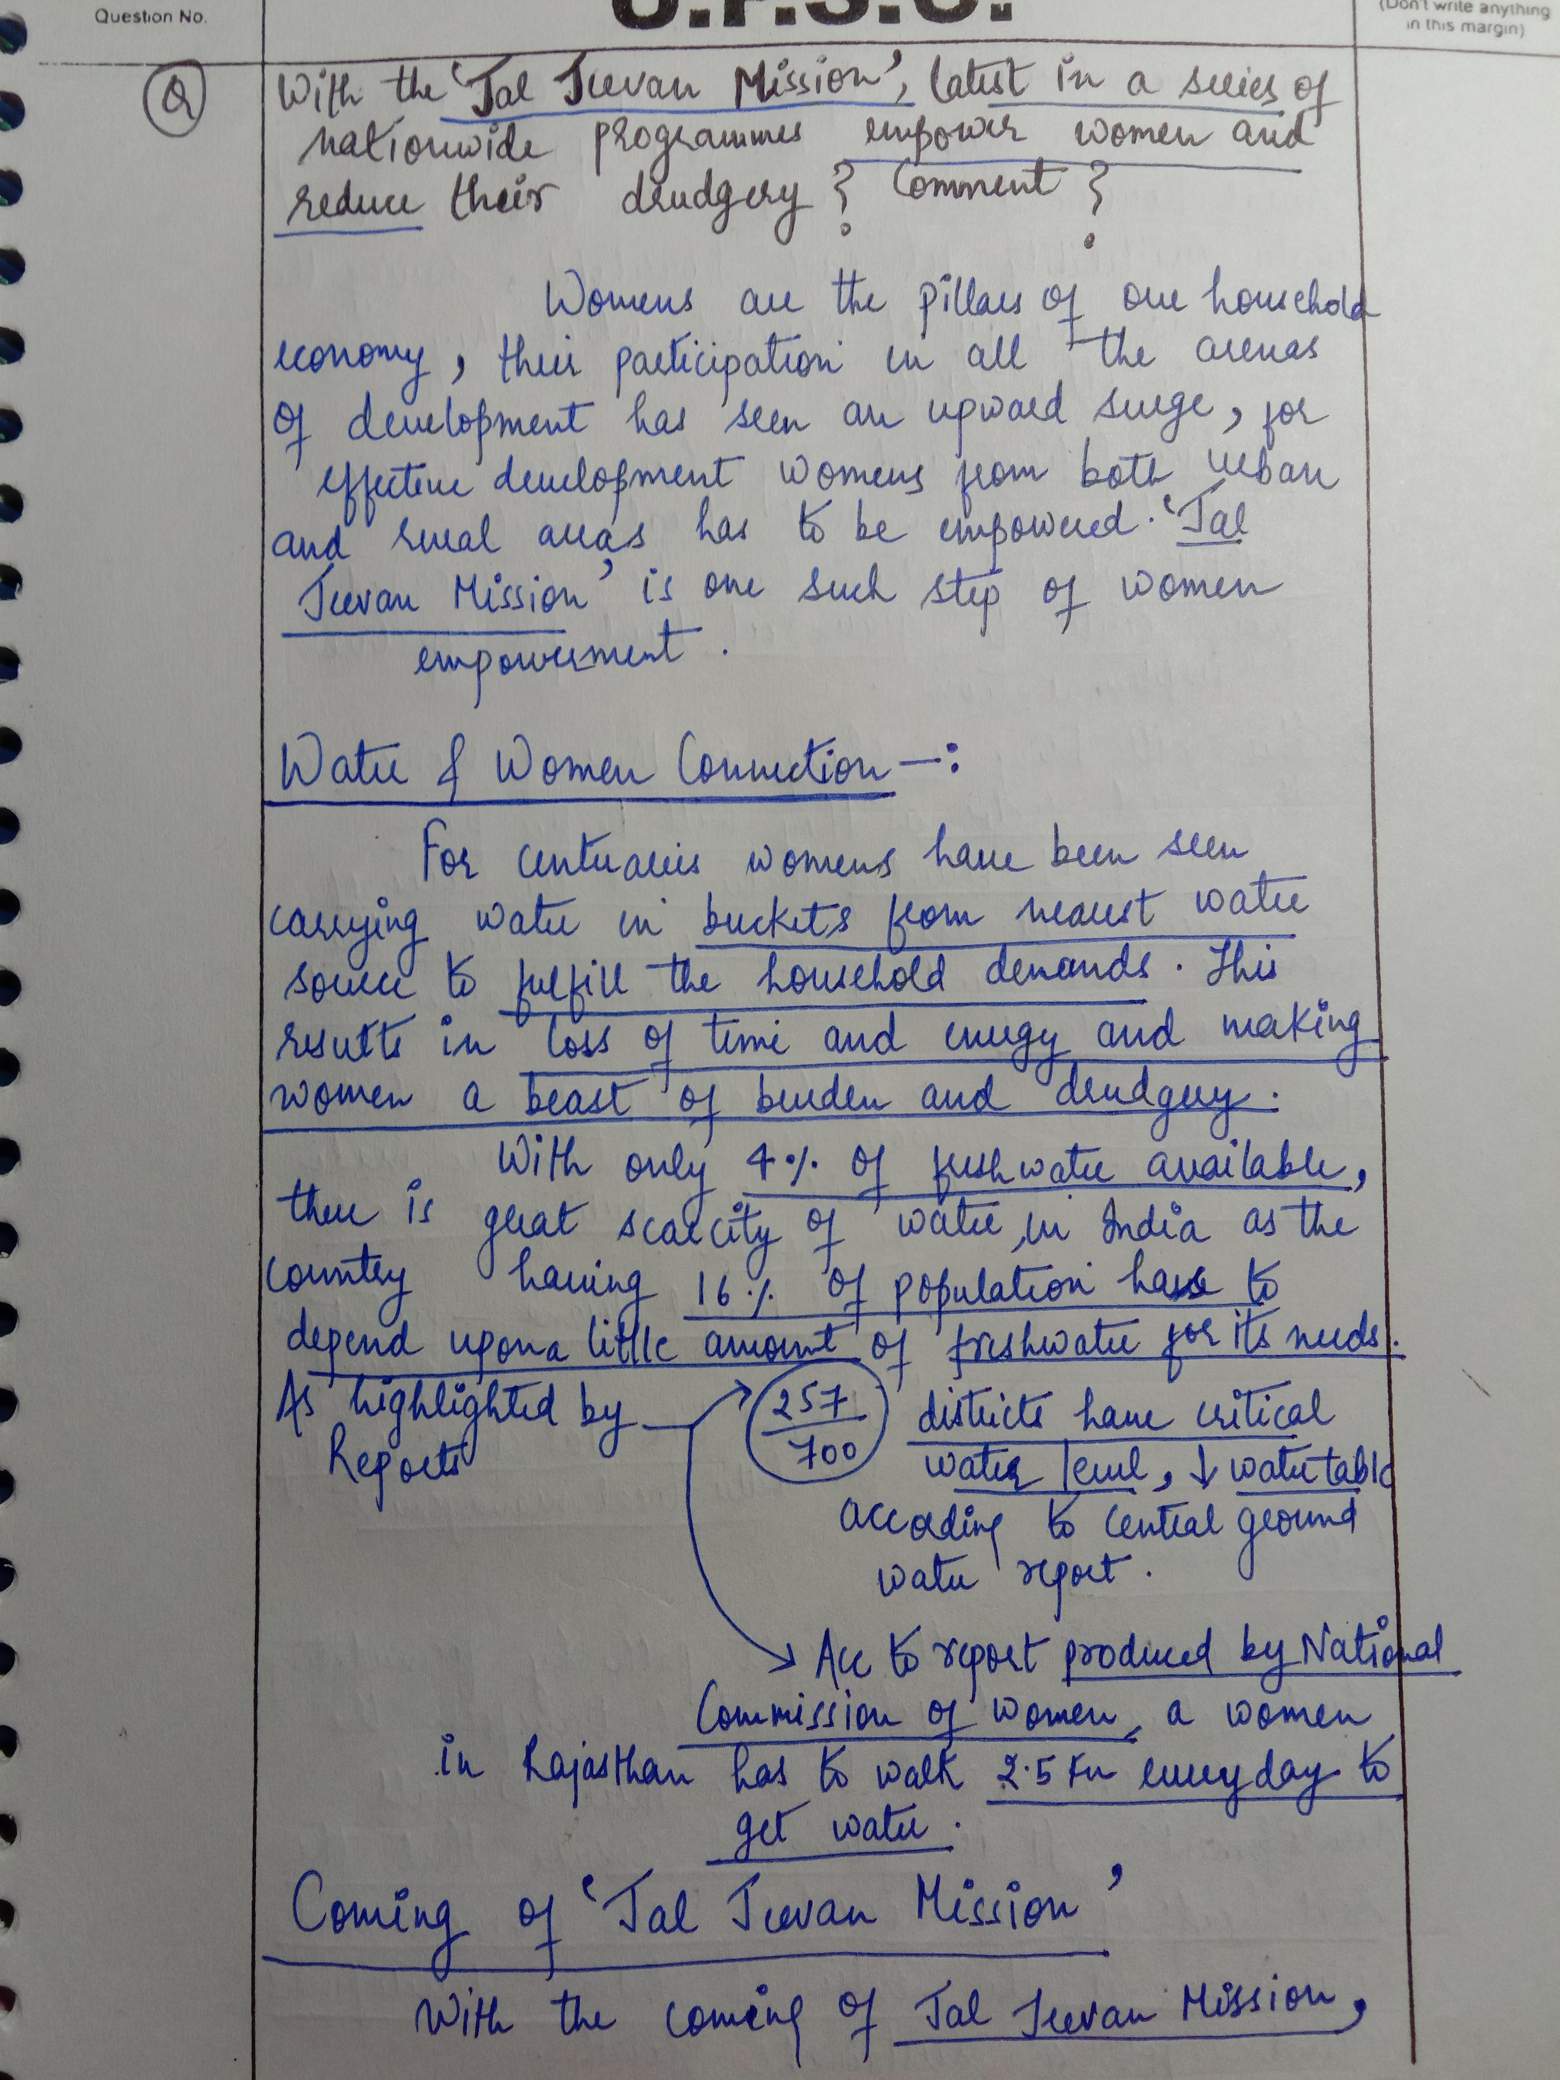 Question No.
U.P.S.C.
(Don't write anything
in this margin)
Q
With the 'Jal Jeevan Mission', latest in a series of
nationwide programmes empower women and
reduce their drudgery? Comment?
Womens are the pillars of our household
economy, their participation in all the arenas
of development has seen an upward surge, for
effective development womens from both urban
and rural areas has to be empowered. 'Jal
Jeevan Mission' is one such step of women
empowerment.
Water & Women Connection -:
For centuaries womens have been seen
carrying water in buckets from nearest water
source to fulfill the household demands. This
results in loss of time and energy and making
women a beast of burden and drudgery.
With only 4% of freshwater available,
there is great scarcity of water, in India as the
country having 16% of population have to
depend upon a little amount of freshwater for its needs.
As highlighted by
Reports
257/700 districts have critical
water level, ↓ watertable
according to central ground
water report.
→ Acc to report produced by National
Commission of women, a women
in Rajasthan has to walk 2.5 km everyday to
get water.
Coming of 'Jal Jeevan Mission'
With the coming of Jal Jeevan Mission,